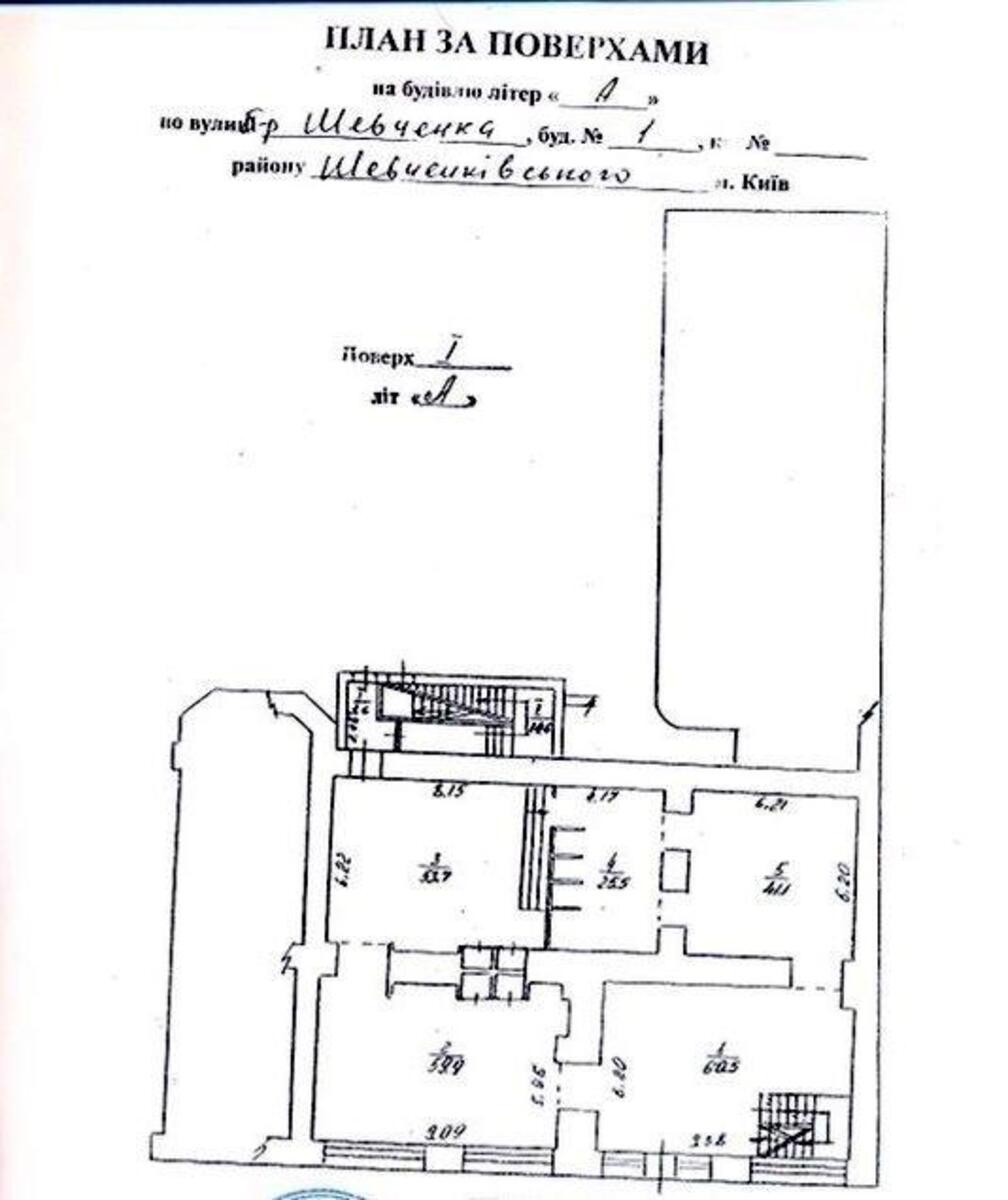 ПЛАН ЗА ПОВЕРХАМИ
на будівлю літер « А »
по вулиці б-р Шевченка, буд. № 1, к №
району Шевченківського м. Київ
Поверх І
літ «А»
І
8.15
6.17
6.21
6.22
3
53.7
4
25.5
5
41.1
6.20
2
59.9
5.95
6.20
1
60.5
9.09
9.58